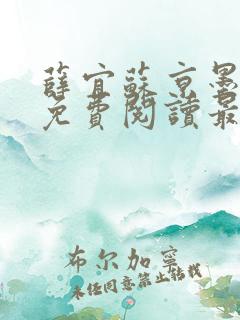 薛宜蘇京墨
免費閱讀最
布尔加寧
未经同意禁止转载